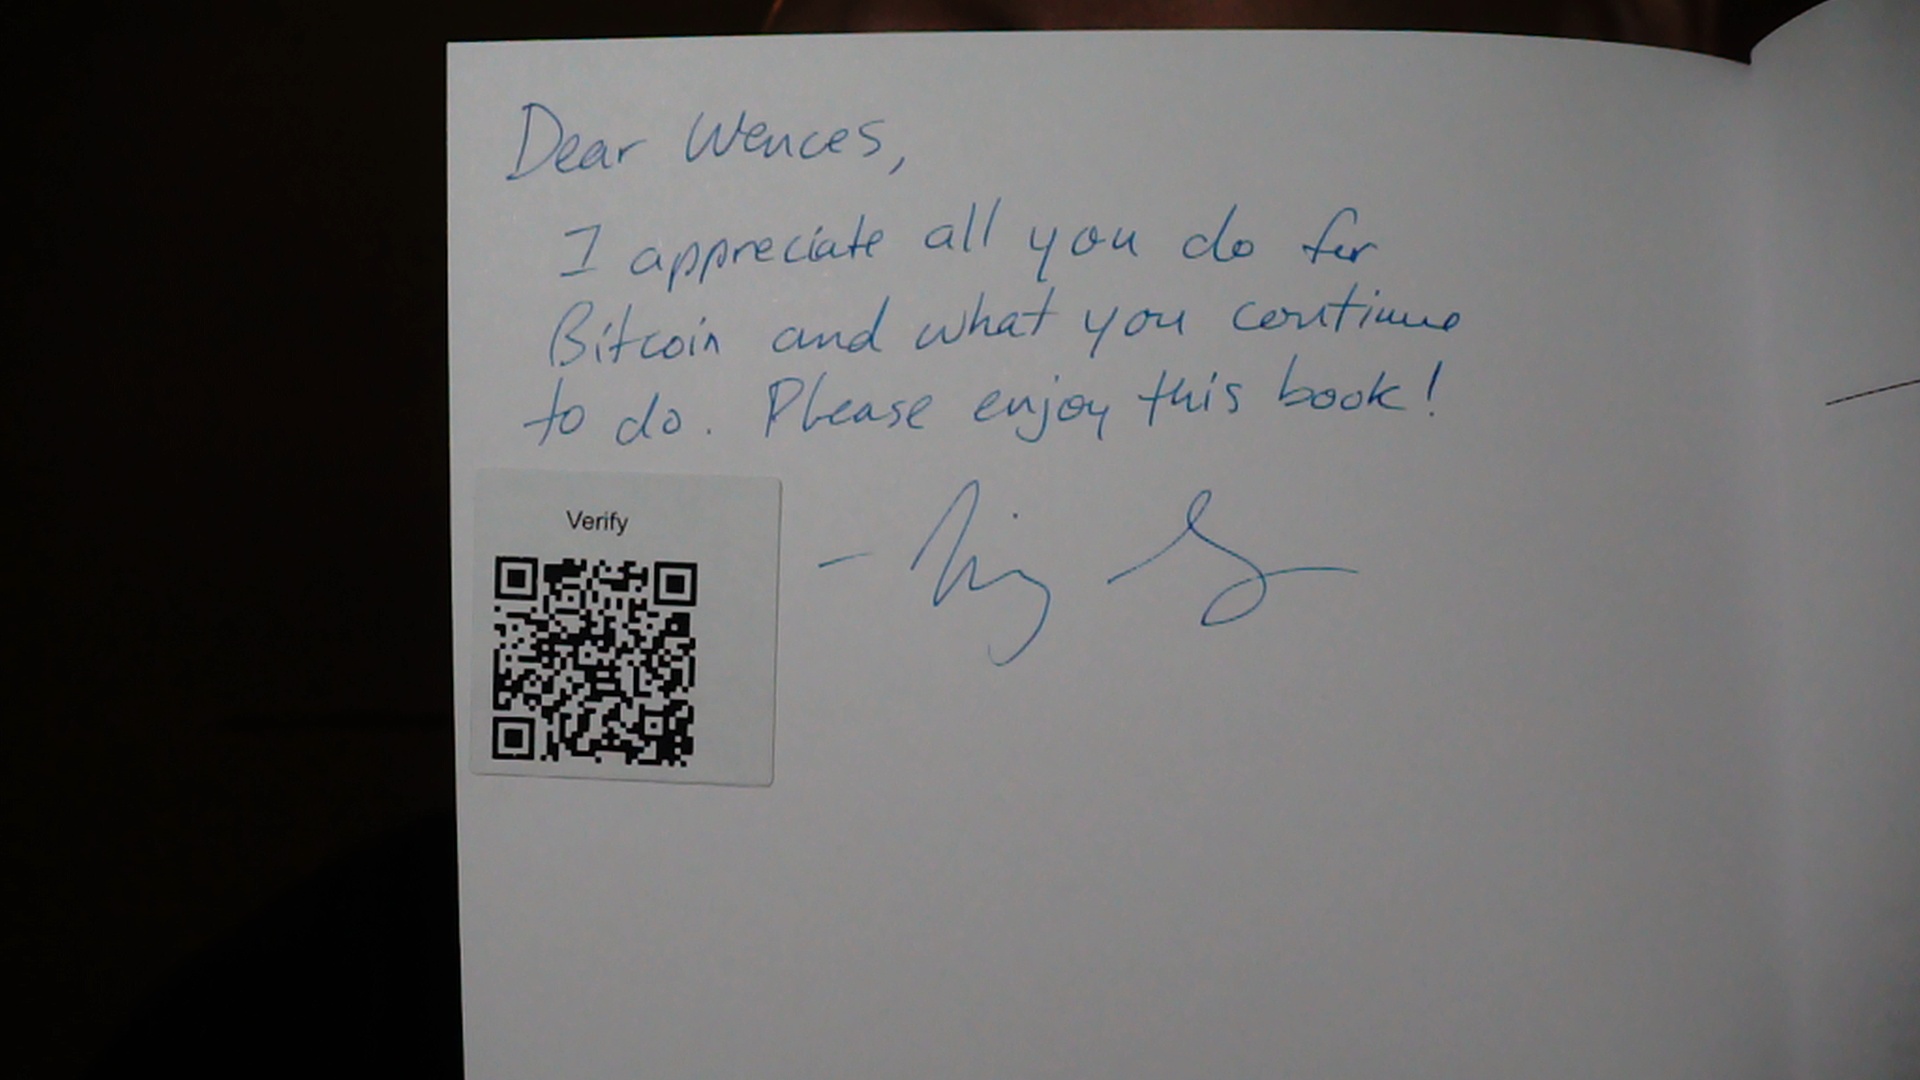 Dear Wences,
I appreciate all you do for
Bitcoin and what you continue
to do. Please enjoy this book!
Verify